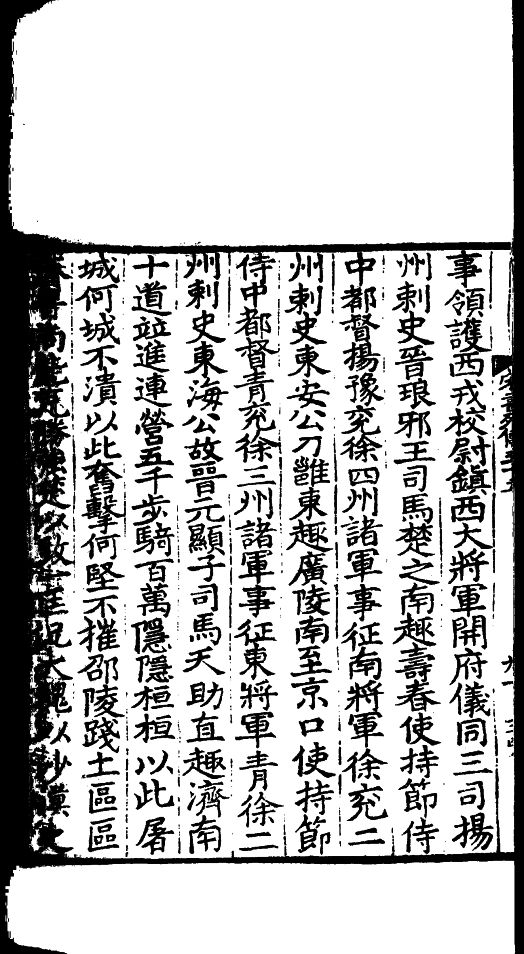 事領護西戎校尉鎮西大將軍開府儀同三司揚
州刺史晉琅邪王司馬楚之南趣壽春使持節侍
中都督揚豫兗徐四州諸軍事征南將軍徐兗二
州刺史東安公刀雝東趣廣陵南至京口使持節
侍中都督青兗徐三州諸軍事征東將軍青徐二
州刺史東海公故晉元顯子司馬天助直趣濟南
十道竝進連營五千步騎百萬隱隱桓桓以此屠
城何城不潰以此奮擊何堅不摧邵陵踐土區區